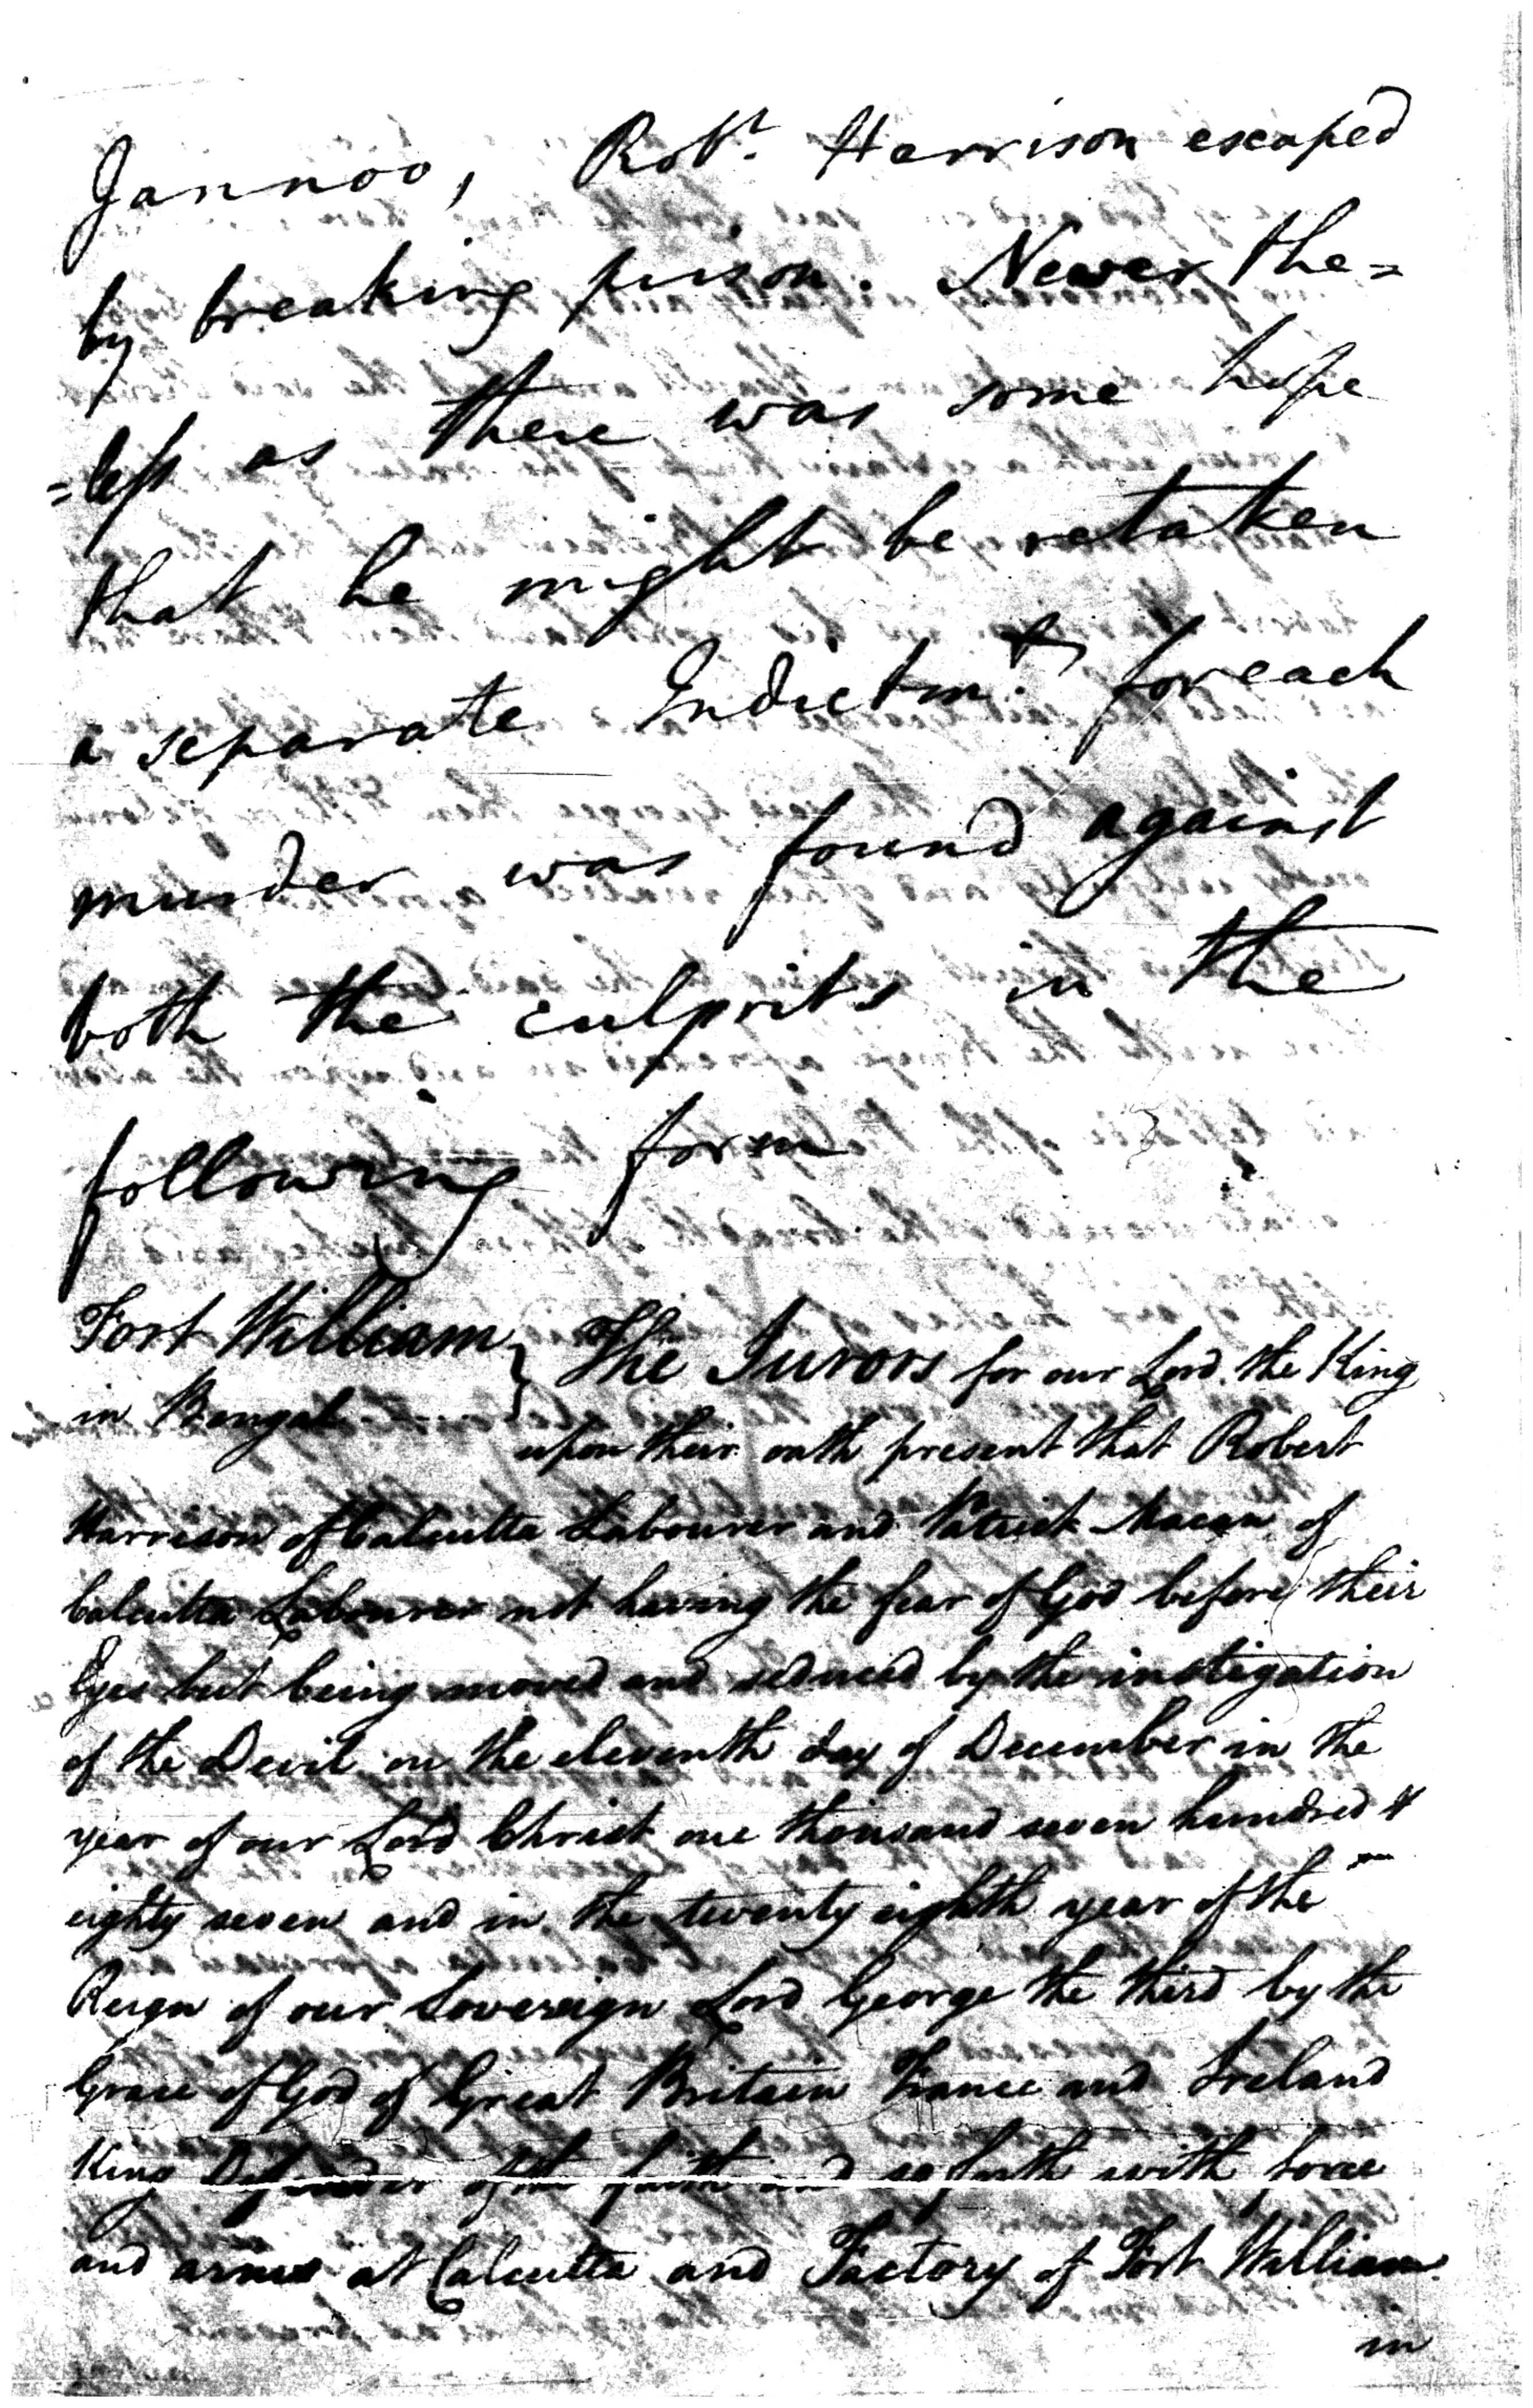 Jannoo, Robt. Harrison escaped
by breaking prison. Never the=
=less as there was some hope
that he might be retaken
a separate Indictmt. for each
murder was found against
both the culprits in the
following form
Fort William } The Jurors for our Lord the King
in Bengal
upon their oath present that Robert
Harrison of Calcutta Labourer and Patrick Macan of
Calcutta Labourer not having the fear of God before their
Eyes but being moved and seduced by the instigation
of the Devil on the eleventh day of December in the
year of our Lord Christ one thousand seven hundred &
eighty seven and in the twenty eighth year of the
Reign of our Sovereign Lord George the third by the
Grace of God of Great Britain France and Ireland
King Defender of the faith and so forth with force
and arms at Calcutta and Factory of Fort William
in